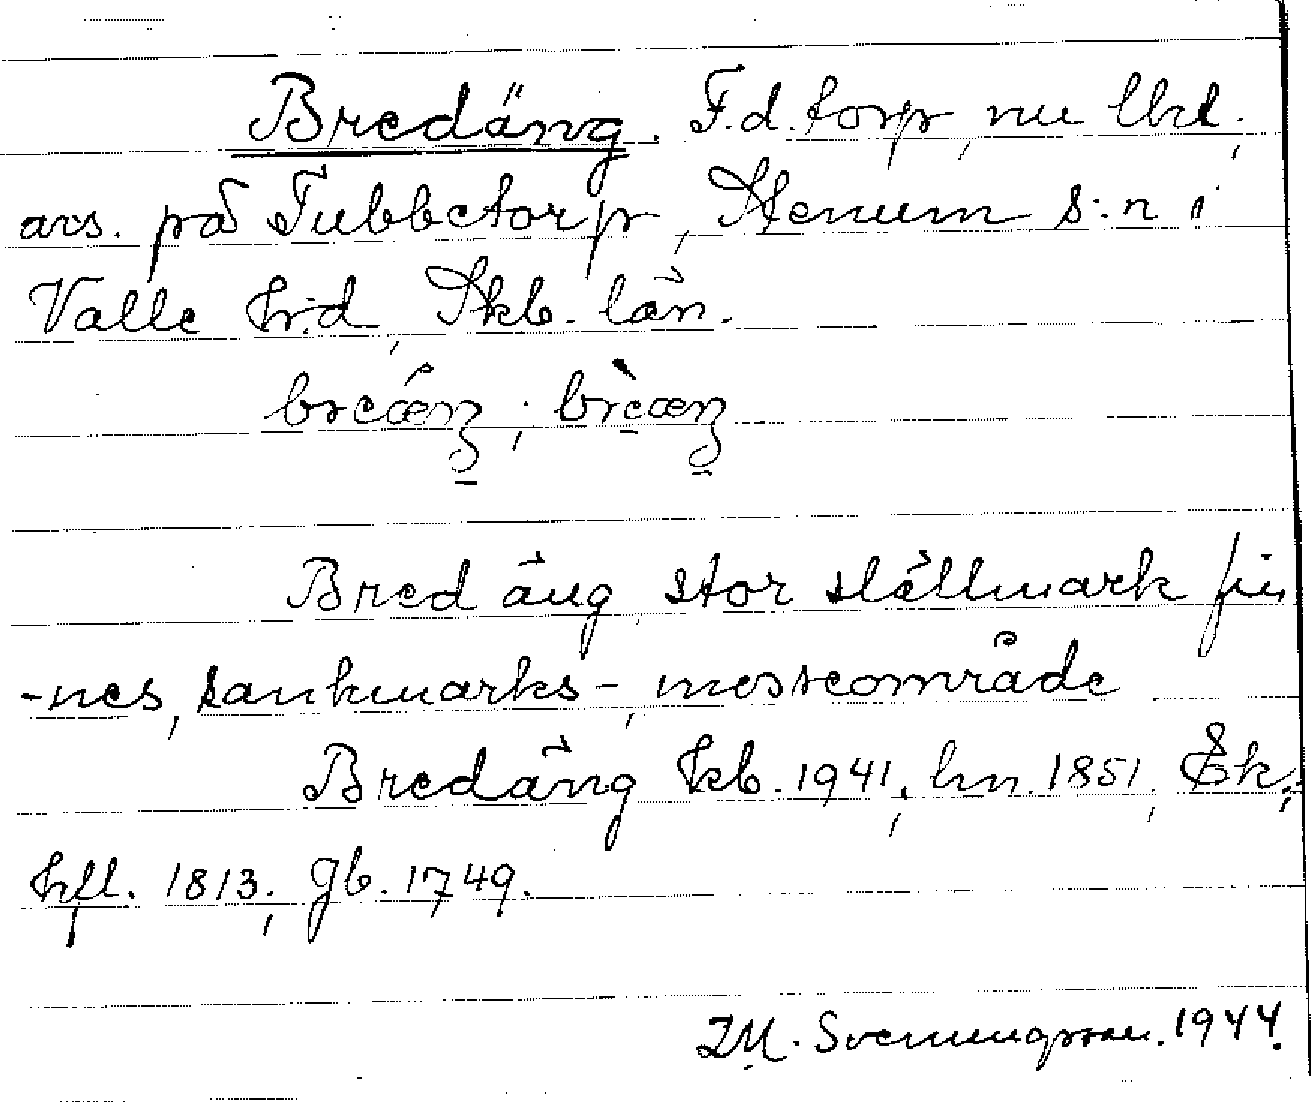 Bredäng. F.d. torp, nu lht,
ars. på Tubbetorp, Stenum s:n i
Valle h:d, Skb. län.
breæŋ; brèæŋ
Bred äng, stor slåttmark fin
-nes, sankmarks-, mosseområde
Bredäng kb. 1941; hn. 1851; Ek;
hfl. 1813; gb. 1749.
Svenungsson. 1944.